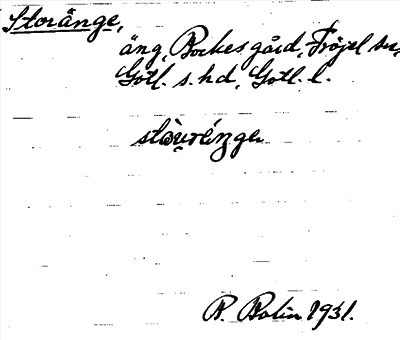 Storänge,
äng, Bockes gård, Fröjel sn,
Gotl. s. hd, Gotl. l.
stòu̯rénge
R. Bolin 1931.